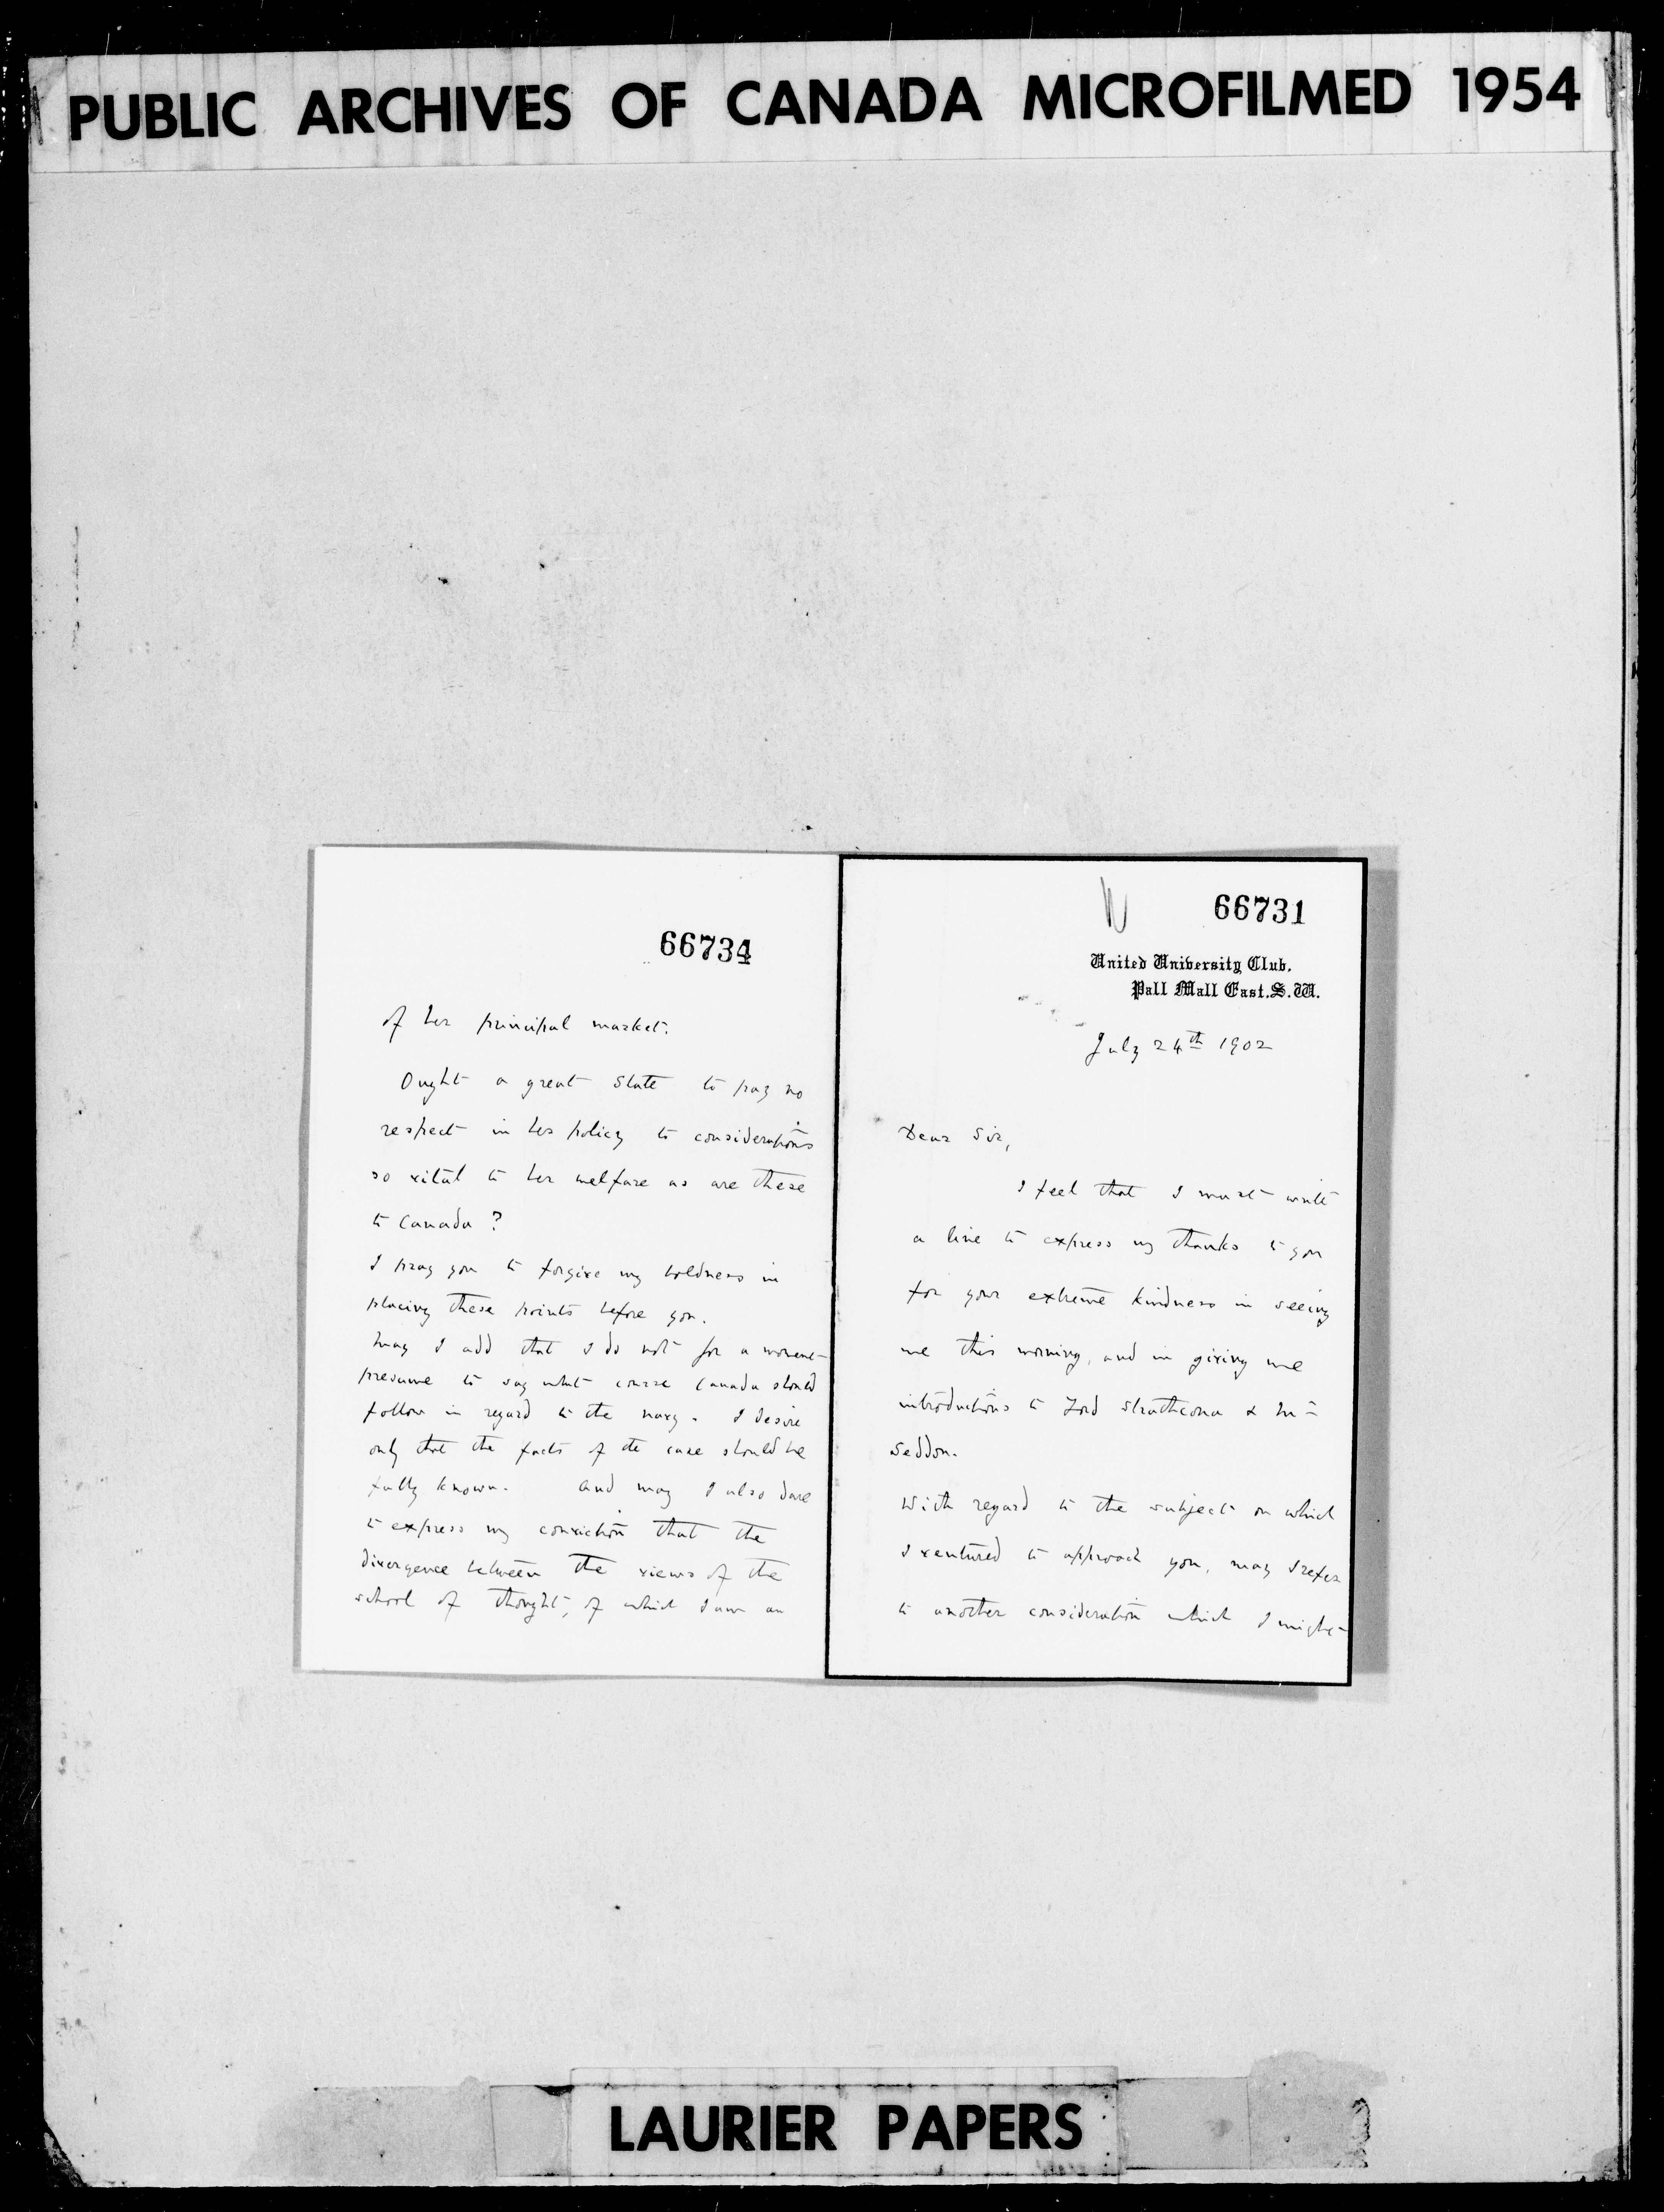 PUBLIC ARCHIVES OF CANADA MICROFILMED 1954
66734
of her principal market.
Ought a great State to pay no
respect in her policy to considerations
so vital to her welfare as are these
to Canada?
I pray you to forgive my boldness in
placing these points before you.
May I add that I do not for a moment
presume to say what course Canada should
follow in regard to the navy. I desire
only that the facts of the case should be
fully known. And may I also dare
to express my conviction that the
divergence between the views of the
school of thought, of which I am an
66731
United University Club.
Pall Mall East. S.W.
July 24th 1902
Dear Sir,
I feel that I must write
a line to express my thanks to you
for your extreme kindness in seeing
me this morning, and in giving me
introductions to Lord Strathcona & Mr
Seddon.
With regard to the subject on which
I ventured to approach you, may I refer
to another consideration which I might
LAURIER PAPERS